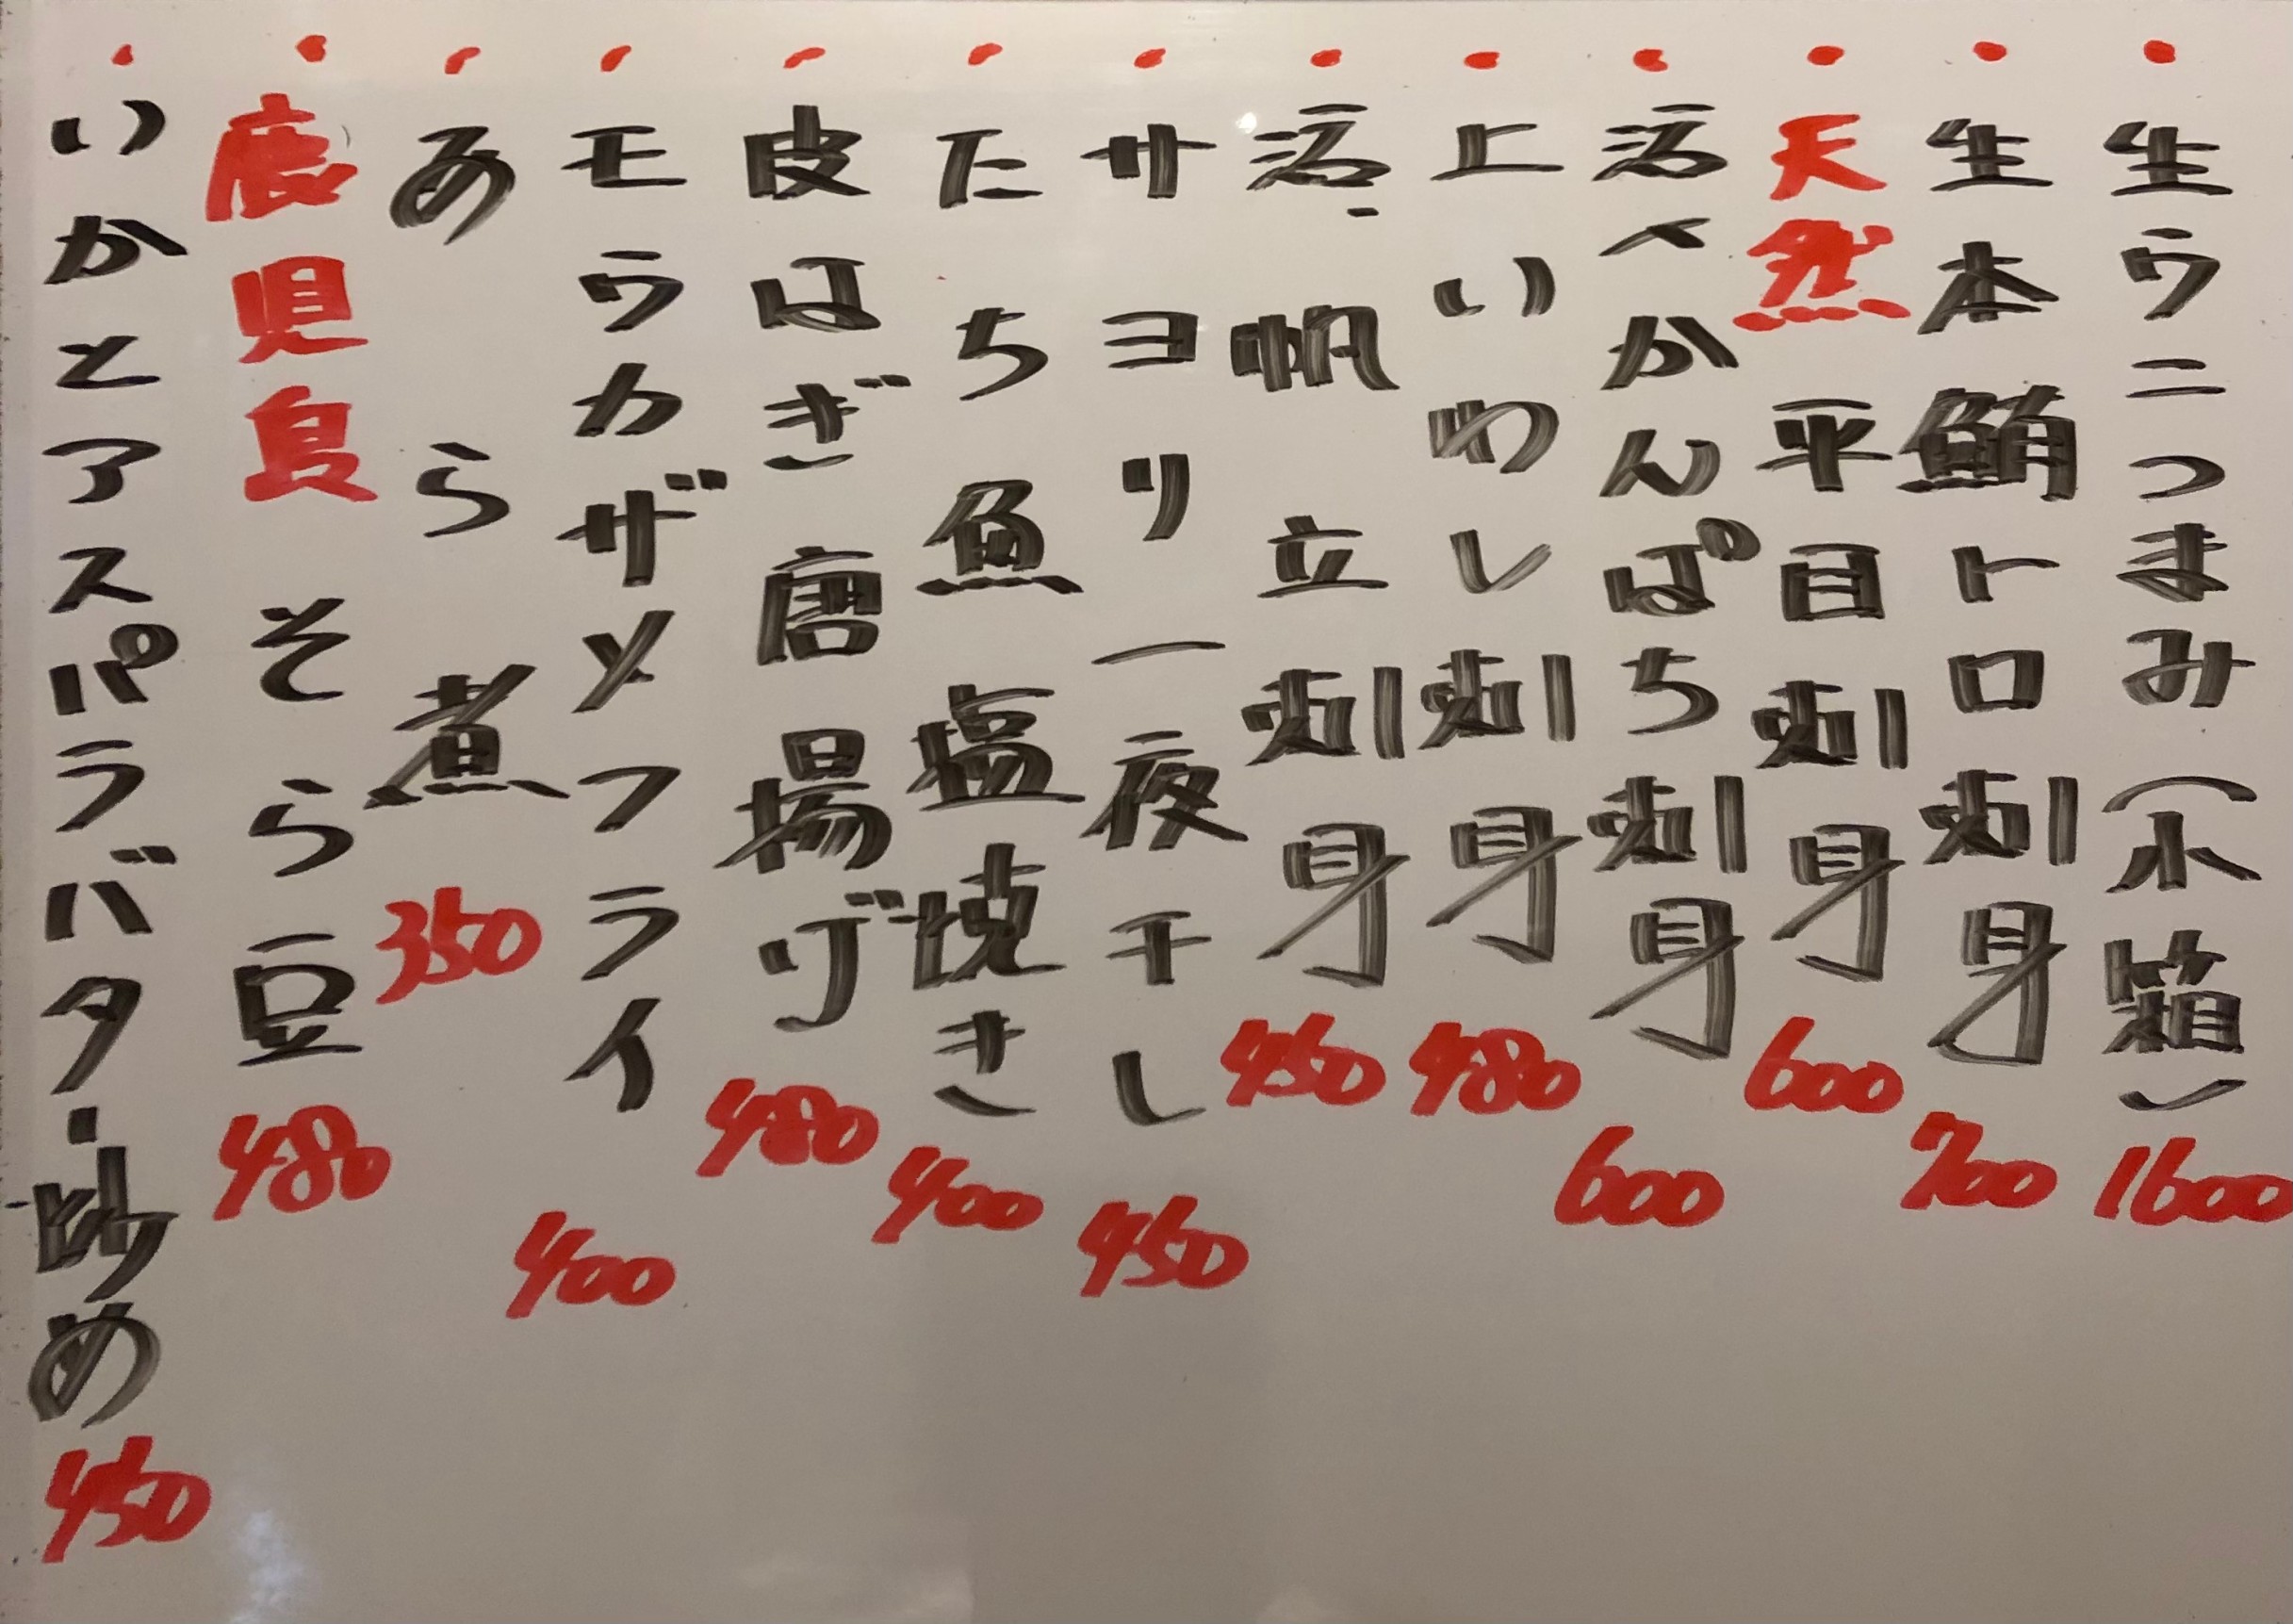 ・生ウニつまみ(小箱) 1600
・生本鮪トロ刺身 700
・天然平目刺身 600
・活〆かんぱち刺身 600
・上いわし刺身 480
・活帆立刺身 450
・サヨリ一夜干し 450
・たち魚塩焼き 400
・皮はぎ唐揚げ 480
・モウカザメフライ 400
・あら煮 350
・鹿児島そら豆 480
・いかとアスパラバター炒め 450